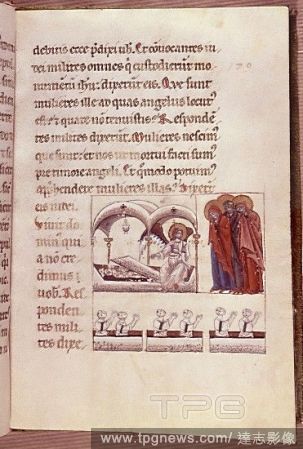 debitis ecce p̄dixi uob. Et conuocantes iu
dei milites omnes q̄ custodierūt mo
numētū ihu: dixerūt eis. Que sunt
mulieres ille ad quas angelus locut᷒
est: & quare nō tenuistis: Respondē
tes milites dixerūt. Mulieres nescim᷒
que sunt: et nos ut mortui facti sum᷒
pre timore angeli. Et q̄modo potuim᷒
app̄hendere mulieres illas. Dixerūt
eis iudei.
Viuit do
min᷒ qui
a nō cre
dimus
uob. Res
ponden
tes mili
tes dixe
TPG
www.tpgnews.com/達志影像